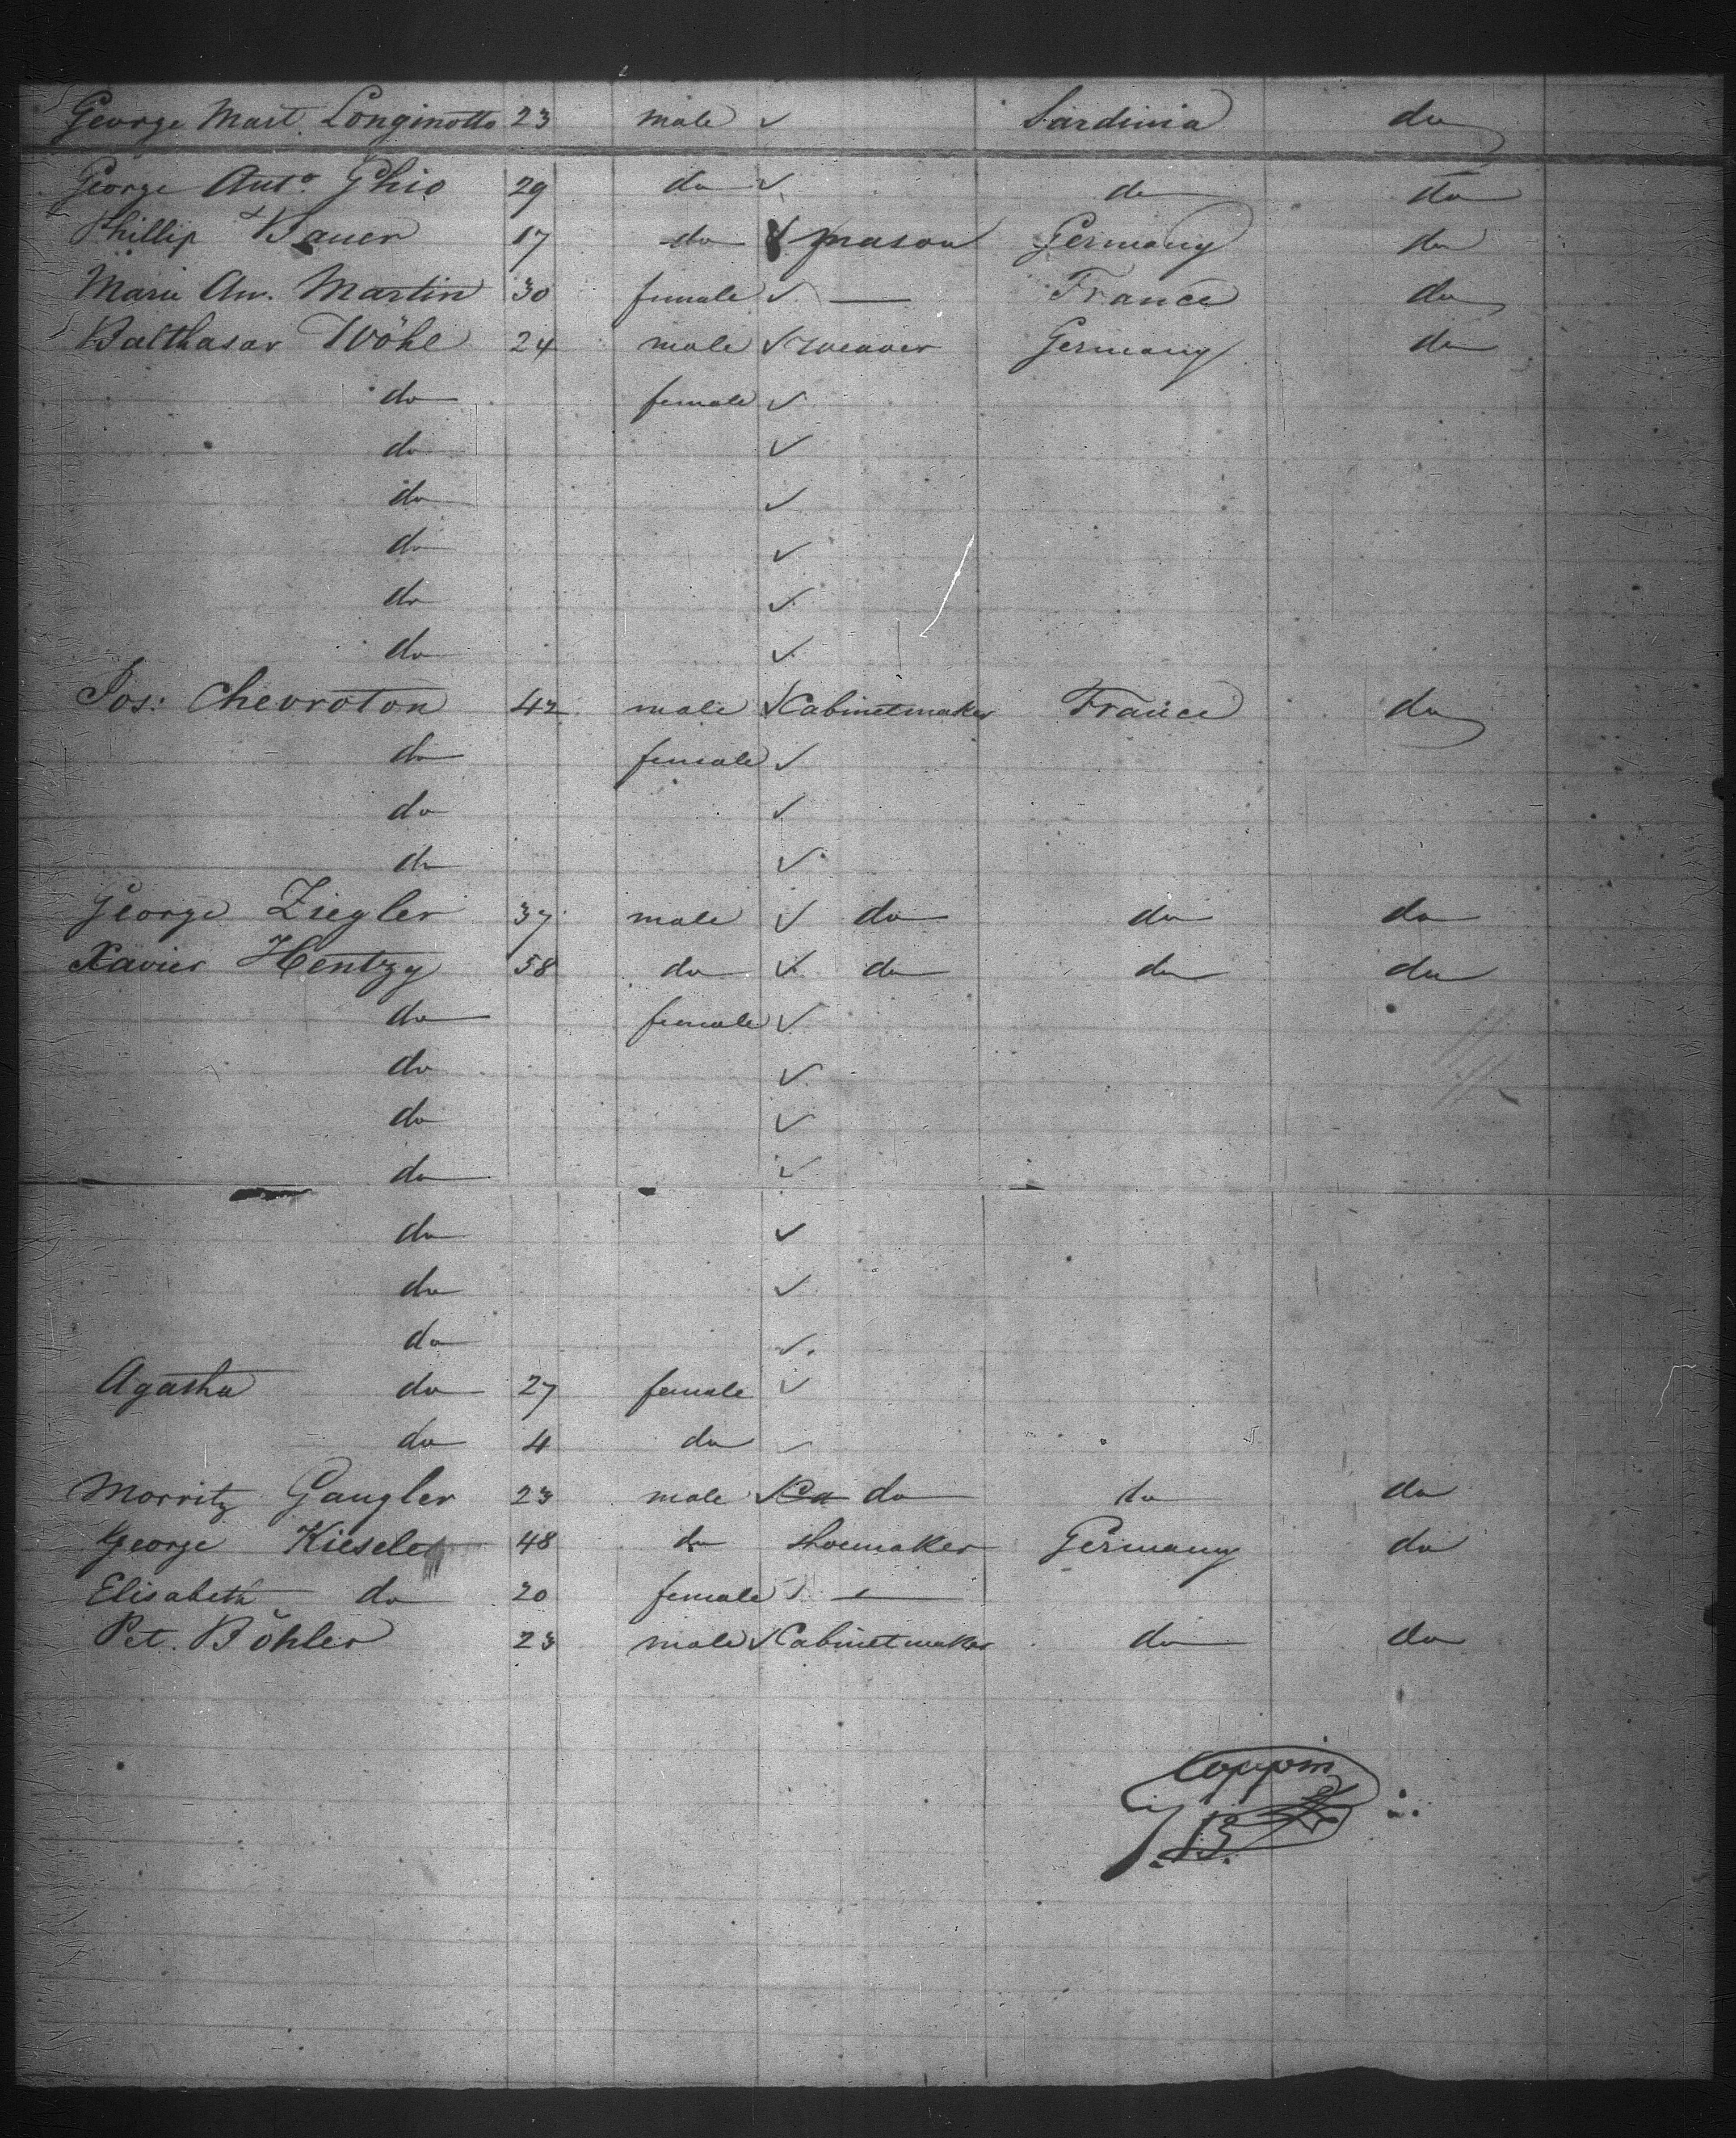 George Mart. Longinotto 23 male ✓ Sardinia do
George Anto. Ghio 29 do ✓ do do
Phillip Bauer 17 do ✓ mason Germany do
Marie An. Martin 30 female ✓ — France do
Balthasar Wöhl 24 male ✓ weaver Germany do
do female ✓
do ✓
do ✓
do ✓
do ✓
do ✓
Jos: Chevroton 42 male ✓ Cabinetmaker France do
do female ✓
do ✓
do ✓
George Ziegler 37 male ✓ do do do
Xavier Hentzy 58 do ✓ do do do
do female ✓
do ✓
do ✓
do ✓
do ✓
do ✓
do ✓
Agatha do 27 female ✓
do 4 do
Morritz Gangler 23 male ✓ Ca do do do
George Kieseler 48 do shoemaker Germany do
Elisabeth do 20 female —
Pet. Böhler 23 male ✓ Cabinetmaker do do
Coppin
J.B.